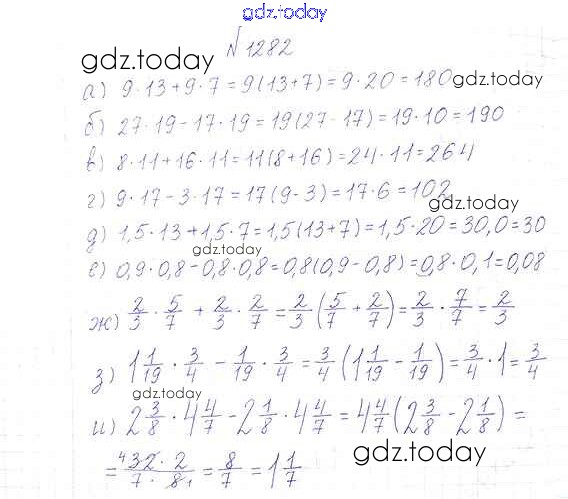 gdz.today
№1282
gdz.today
а) 9·13+9·7=9(13+7)=9·20=180
gdz.today
б) 27·19-17·19=19(27-17)=19·10=190
в) 8·11+16·11=11(8+16)=24·11=264
г) 9·17-3·17=17(9-3)=17·6=102
gdz.today
д) 1,5·13+1,5·7=1,5(13+7)=1,5·20=30,0=30
gdz.today
е) 0,9·0,8-0,8·0,8=0,8(0,9-0,8)=0,8·0,1=0,08
ж) 2/3 · 5/7 + 2/3 · 2/7 = 2/3 (5/7 + 2/7) = 2/3 · 7/7 = 2/3
з) 1 1/19 · 3/4 - 1/19 · 3/4 = 3/4 (1 1/19 - 1/19) = 3/4 · 1 = 3/4
gdz.today
и) 2 3/8 · 4 4/7 - 2 1/8 · 4 4/7 = 4 4/7 (2 3/8 - 2 1/8) =
= 4 32 · 2 / 7 · 8 1 = 8/7 = 1 1/7
gdz.today